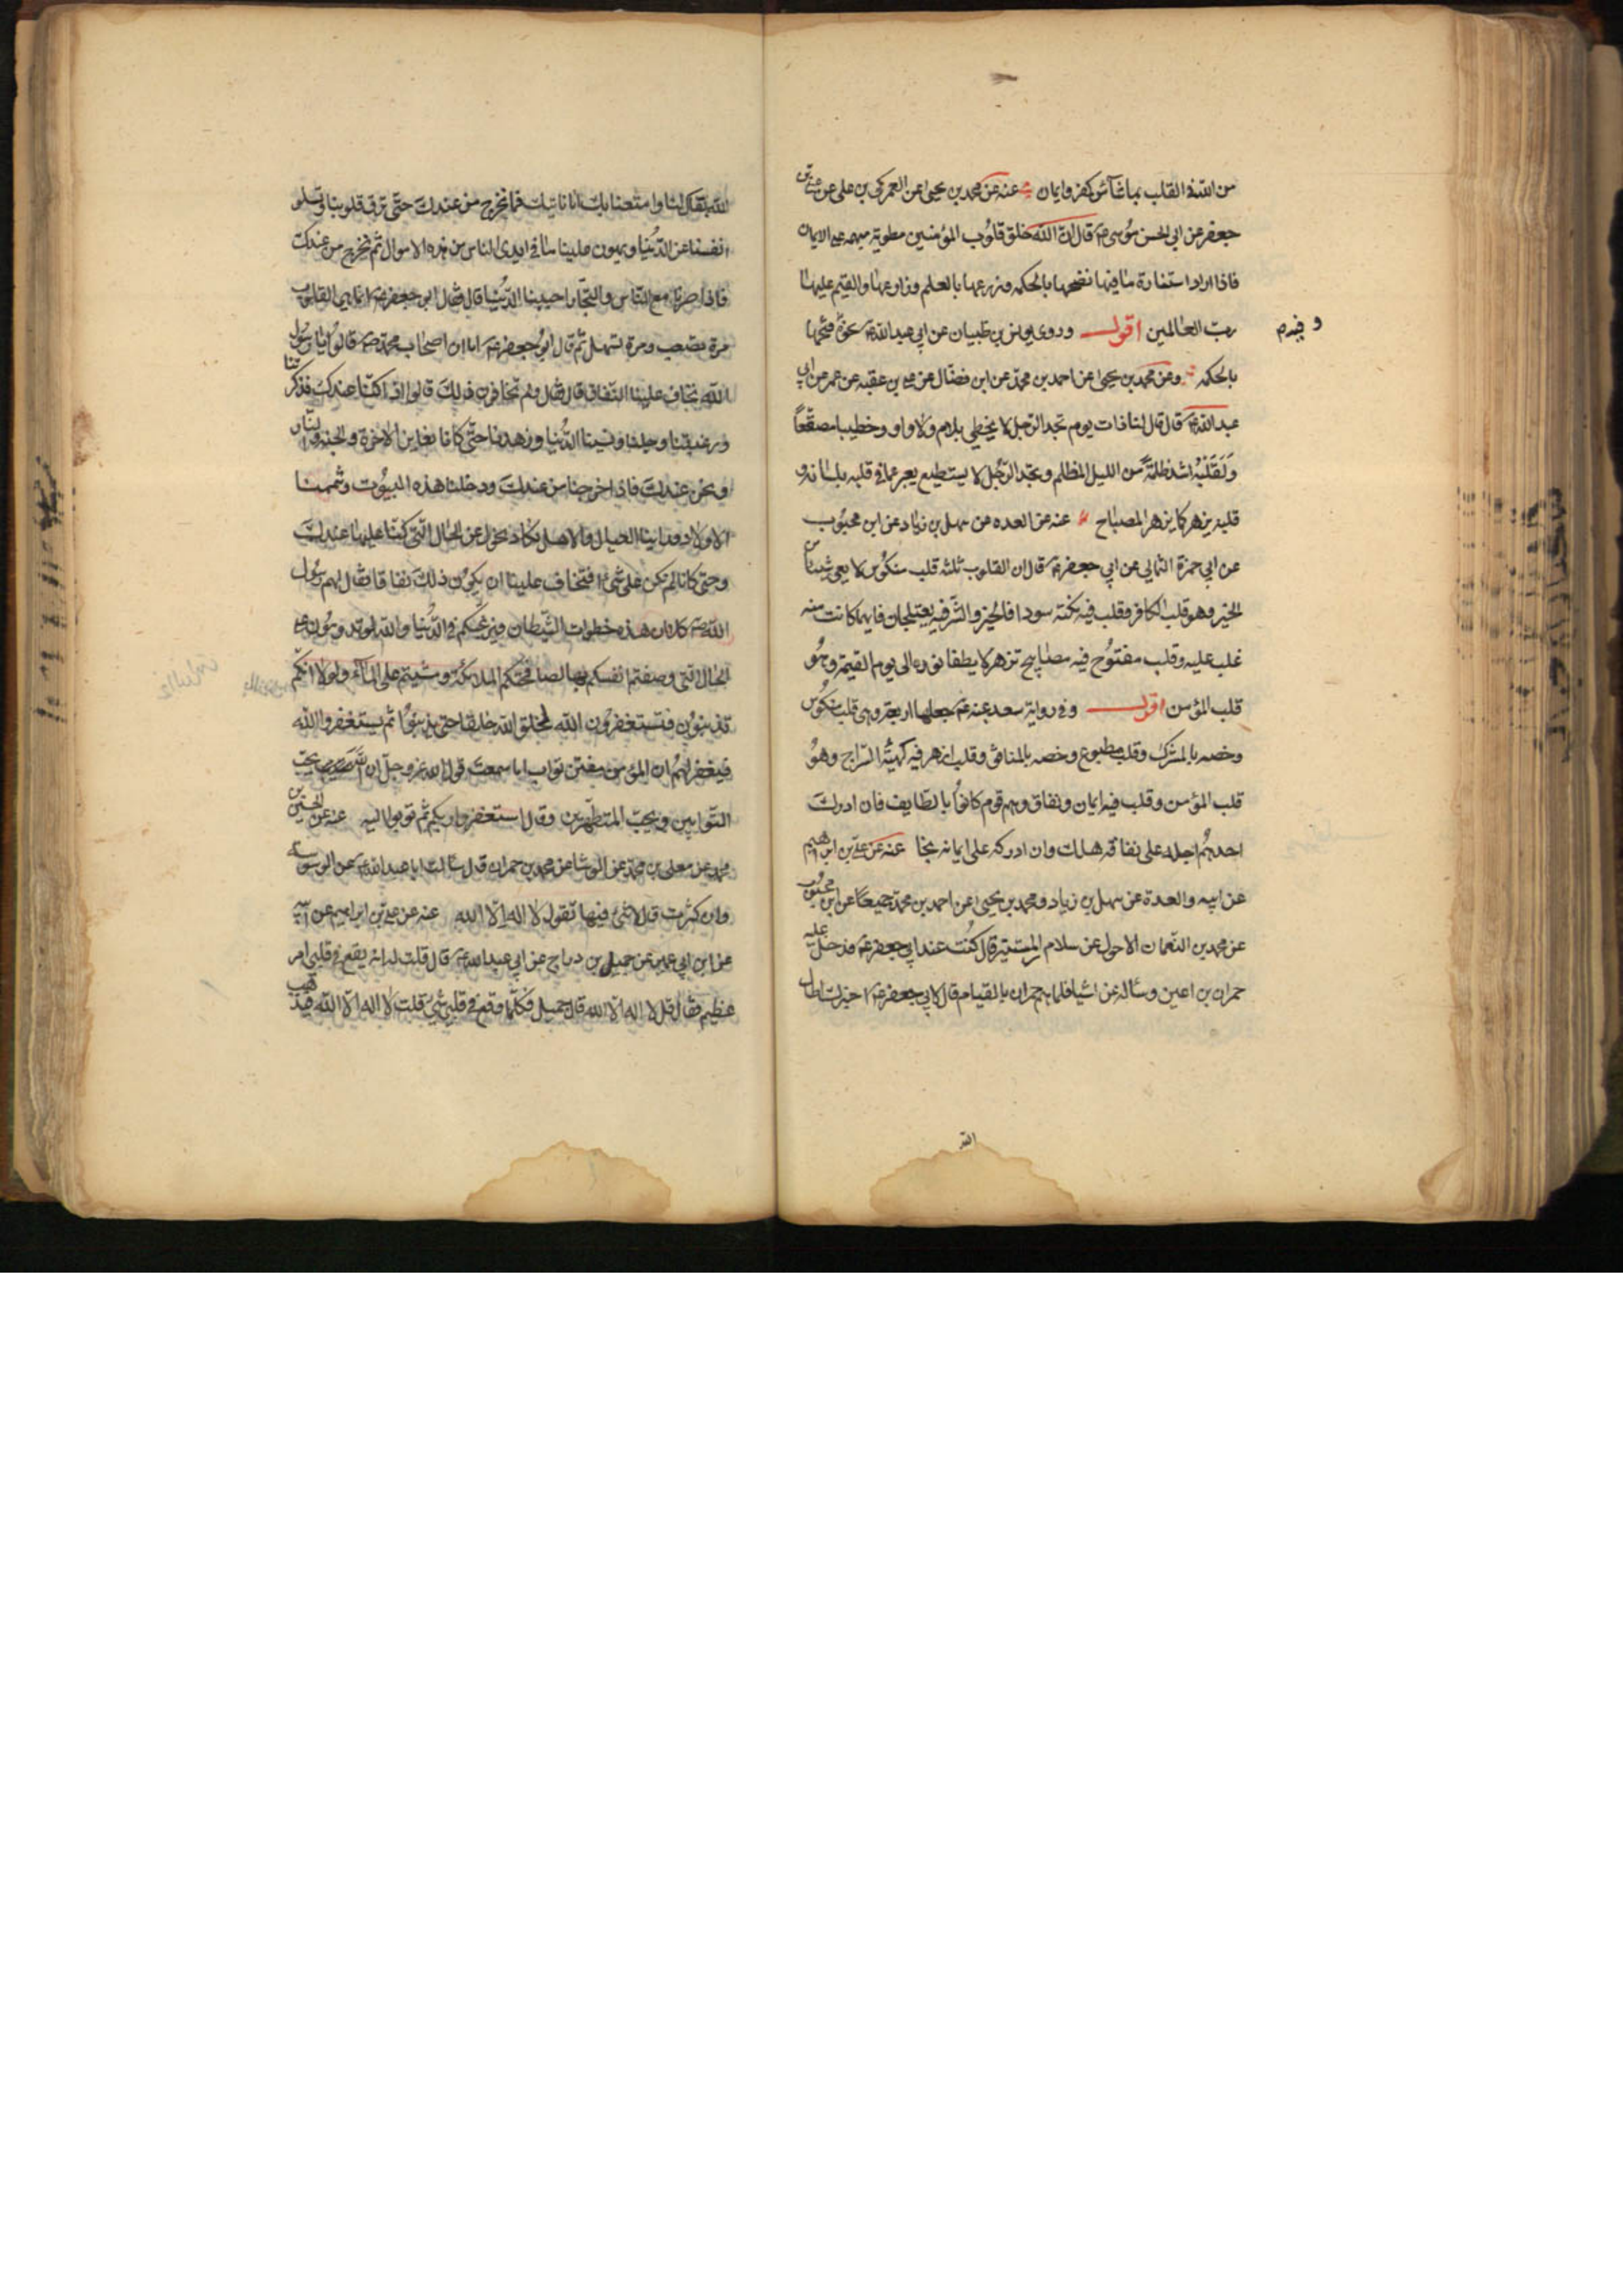 من الله في القلب بما شاء من كفر وايمان عنه عن محمد بن يحيى عن العمركي بن علي عن علي بن
جعفر عن ابي الحسن موسى ع قال ان الله خلق قلوب المؤمنين مطوية مبهمة على الايمان
فاذا اراد استنارة ما فيها نضحها بالحكمة وزرعها بالعلم وزارعها والقيم عليها
رب العالمين اقول وروى يونس بن ظبيان عن ابي عبد الله ع نحوه فتحها
بالحكمة وعن محمد بن يحيى عن احمد بن محمد عن ابن فضال عن علي بن عقبه عن عمر عن ابي
عبد الله ع قال قال لنا ذات يوم تجد الرجل لا يخطي بلام ولا واو وخطيبا مصقعا
ولقلبه اشد ظلمة من الليل المظلم وتجد الرجل لا يستطيع يعبر عما في قلبه بلسانه و
قلبه يزهر كما يزهر المصباح عنه عن العده عن سهل بن زياد عن ابن محبوب
عن ابي حمزة الثمالي عن ابي جعفر ع قال ان القلوب ثلثه قلب منكوس لا يعي شيئا من
الخير وهو قلب الكافر وقلب فيه نكتة سودا فالخير والشر فيه يعتلجان فايهما كانت منه
غلب عليه وقلب مفتوح فيه مصابيح تزهر لا يطفا نوره الى يوم القيمة وهو
قلب المؤمن اقول وفي رواية سعد عنه ع جعلها اربعة وهي قلب منكوس
وخصه بالمشرك وقلب مطبوع وخصه بالمنافق وقلب ازهر فيه كهيئة السراج وهو
قلب المؤمن وقلب فيه ايمان ونفاق وهم قوم كانوا بالطايف فان ادرك
احدهم اجله على نفاقه هلك وان ادركه على ايمانه نجا عنه عن علي بن ابرهيم
عن ابيه والعدة عن سهل بن زياد ومحمد بن يحيى عن احمد بن محمد جميعا عن ابن محبوب
عن محمد بن النعمان الاحول عن سلام بن المستنير قال كنت عند ابي جعفر ع فدخل عليه
حمران بن اعين وساله عن اشيا فلما هم حمران بالقيام قال لابي جعفر ع اخبرك اطال
الله
الله بقاك لنا وامتعنا بك انا ناتيك فما نخرج من عندك حتى ترق قلوبنا وتسلو
انفسنا عن الدنيا ويهون علينا ما في ايدى الناس من هذه الاموال ثم نخرج من عندك
فاذا صرنا مع الناس والتجار احببنا الدنيا قال فقال ابو جعفر ع انما هي القلوب
مرة تصعب ومرة تسهل ثم قال ابو جعفر ع اما ان اصحاب محمد ص قالوا يا رسول
الله نخاف علينا النفاق قال فقال ولم تخافون ذلك قالوا اذا كنا عندك فذكرتنا
ورغبتنا وجلنا ونسينا الدنيا وزهدنا حتى كانا نعاين الاخرة والجنة والنار
ونحن عندك فاذا خرجنا من عندك ودخلنا هذه البيوت وشممنا
الاولاد وراينا العيال والاهل نكاد نحول عن الحال التي كنا عليها عندك
وحتى كانا لم نكن على شيء افتخاف علينا ان يكون ذلك نفاقا فقال لهم رسول
الله ص كلا ان هذه خطوات الشيطان فيرغبكم في الدنيا والله لو تدومون على
الحال التي وصفتم انفسكم بها لصافحتكم الملائكة ومشيتم على الماء ولولا انكم
تذنبون فتستغفرون الله لخلق الله خلقا حتى يذنبوا ثم يستغفروا الله
فيغفر لهم ان المؤمن مفتن تواب اما سمعت قول الله عز وجل ان الله يحب
التوابين ويحب المتطهرين وقال استغفروا ربكم ثم توبوا اليه عنه عن الحسين بن
محمد عن معلى بن محمد عن الوشا عن محمد بن حمران قال سالت ابا عبد الله ع عن الوسوسة
وان كثرت قال لا شيء فيها تقول لا اله الا الله عنه عن علي بن ابراهيم عن ابيه
عن ابن ابي عمير عن جميل بن دراج عن ابي عبد الله ع قال قلت له انه يقع في قلبي امر
عظيم فقال قل لا اله الا الله قال جميل فكلما وقع في قلبي شيء قلت لا اله الا الله فيذهب